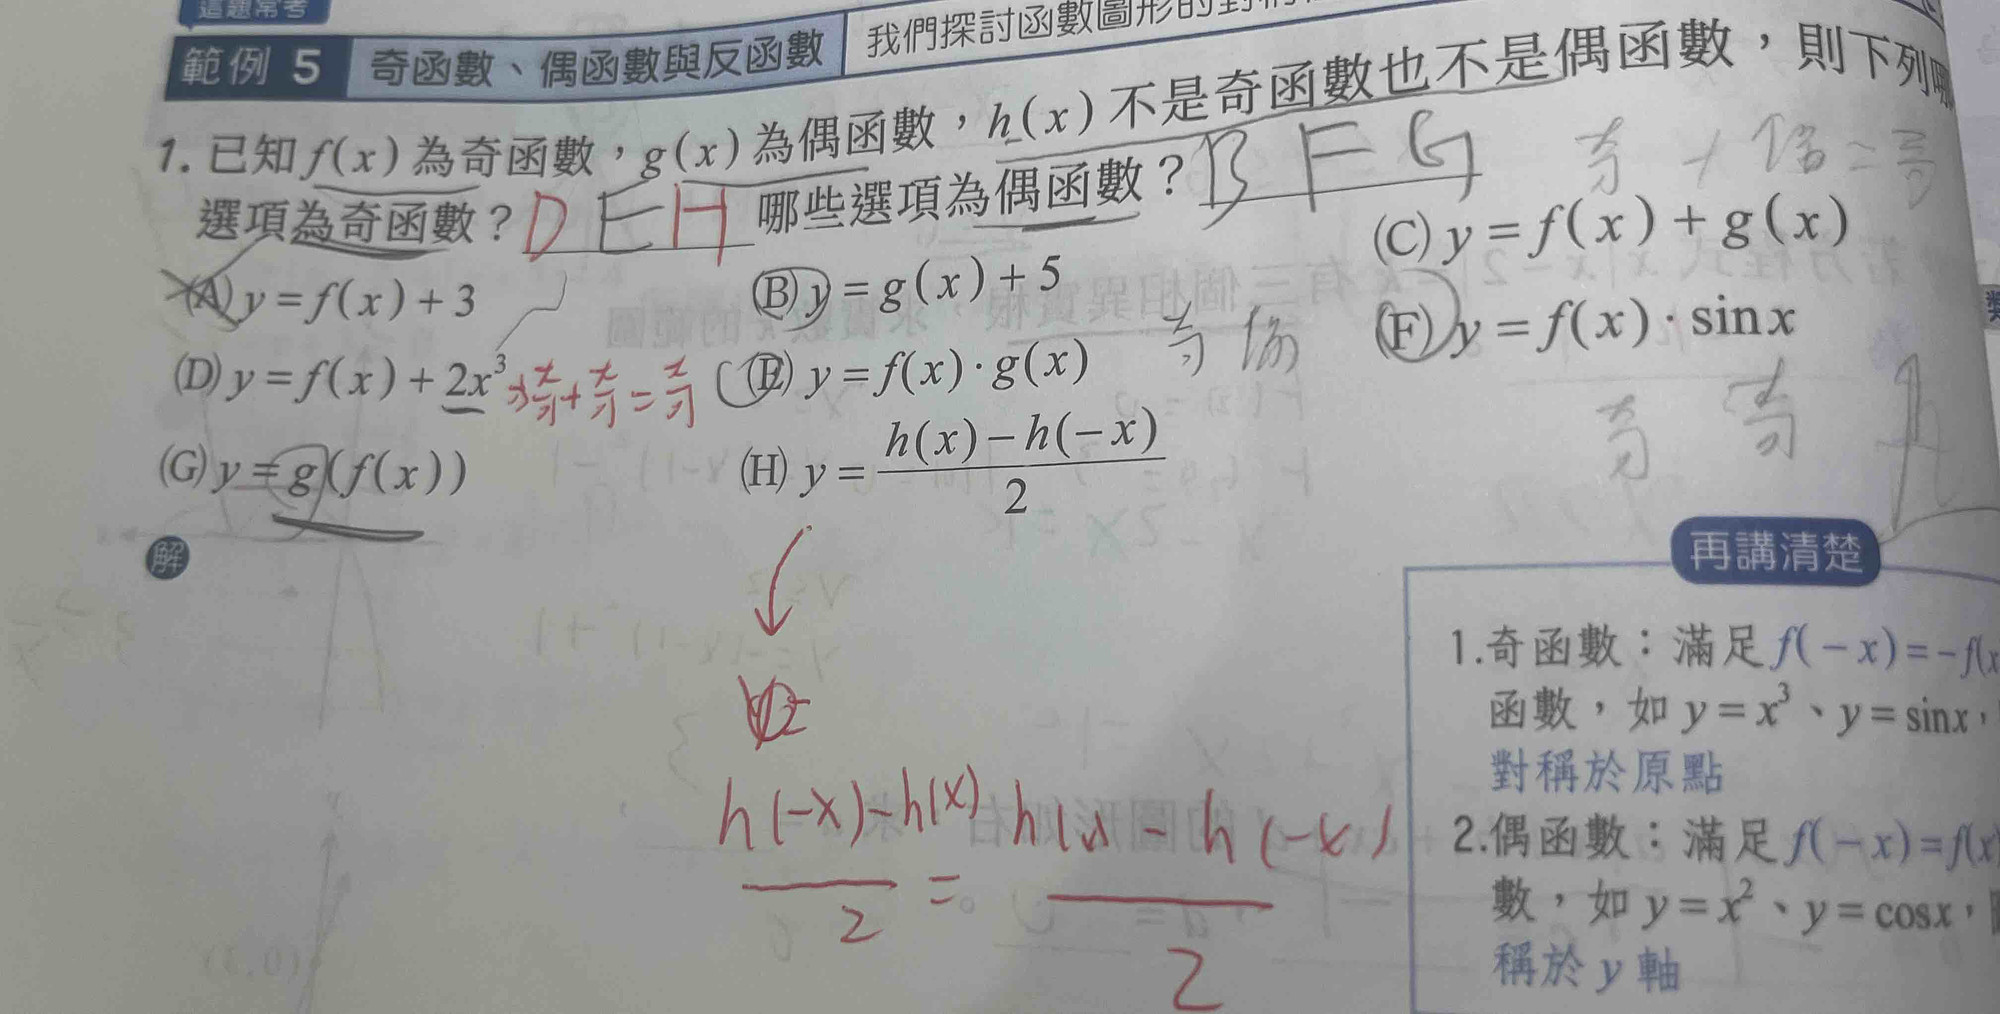 這題常考
範例 5 奇函數、偶函數與反函數 我們探討函數圖形的對稱
1. 已知 f(x) 為奇函數，g(x) 為偶函數，h(x) 不是奇函數也不是偶函數，則下列哪
選項為奇函數？D E H 哪些選項為偶函數？B F G
奇 + 偶 =
(A) y = f(x) + 3 (B) y = g(x) + 5 (C) y = f(x) + g(x)
(D) y = f(x) + 2x³ (E) y = f(x) · g(x) 奇 偶 (F) y = f(x) · sin x
奇 + 奇 = 奇
奇 奇
(G) y = g(f(x)) (H) y = \frac{h(x) - h(-x)}{2}
解
\frac{h(-x) - h(x)}{2} = \frac{h(x) - h(-x)}{2}
再講清楚
1. 奇函數：滿足 f(-x) = -f(x
函數，如 y = x³、y = sin x，
對稱於原點
2. 偶函數：滿足 f(-x) = f(x
數，如 y = x²、y = cos x，
稱於 y 軸